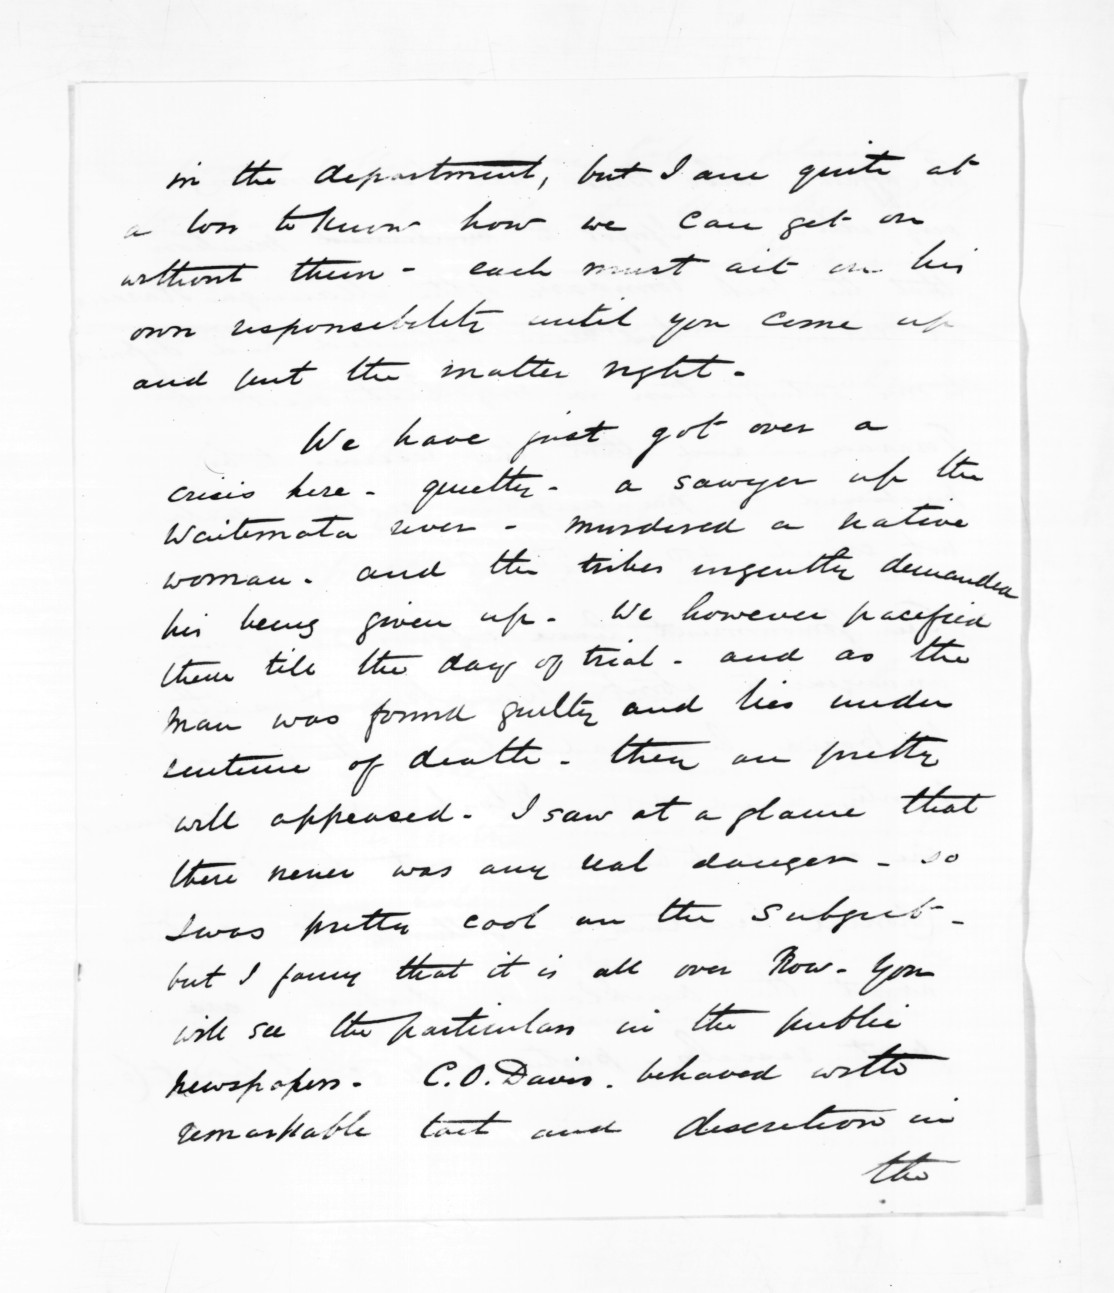 in the department, but I am quite at
a loss to know how we can get on
without them - each must act on his
own responsibility until you come up
and put the matter right -
We have just got over a
crisis here - quietly - a sawyer up the
Waitemata river - murdered a native
woman - and the tribes urgently demanded
his being given up - We however pacified
them till the day of trial - and as the
man was found guilty and lies under
sentence of death - they are pretty
well appeased - I saw at a glance that
there never was any real danger - so
I was pretty cool on the subject -
but I fancy that it is all over now - You
will see the particulars in the public
newspapers - C.O. Davis. behaved with
remarkable tact and discretion in
the